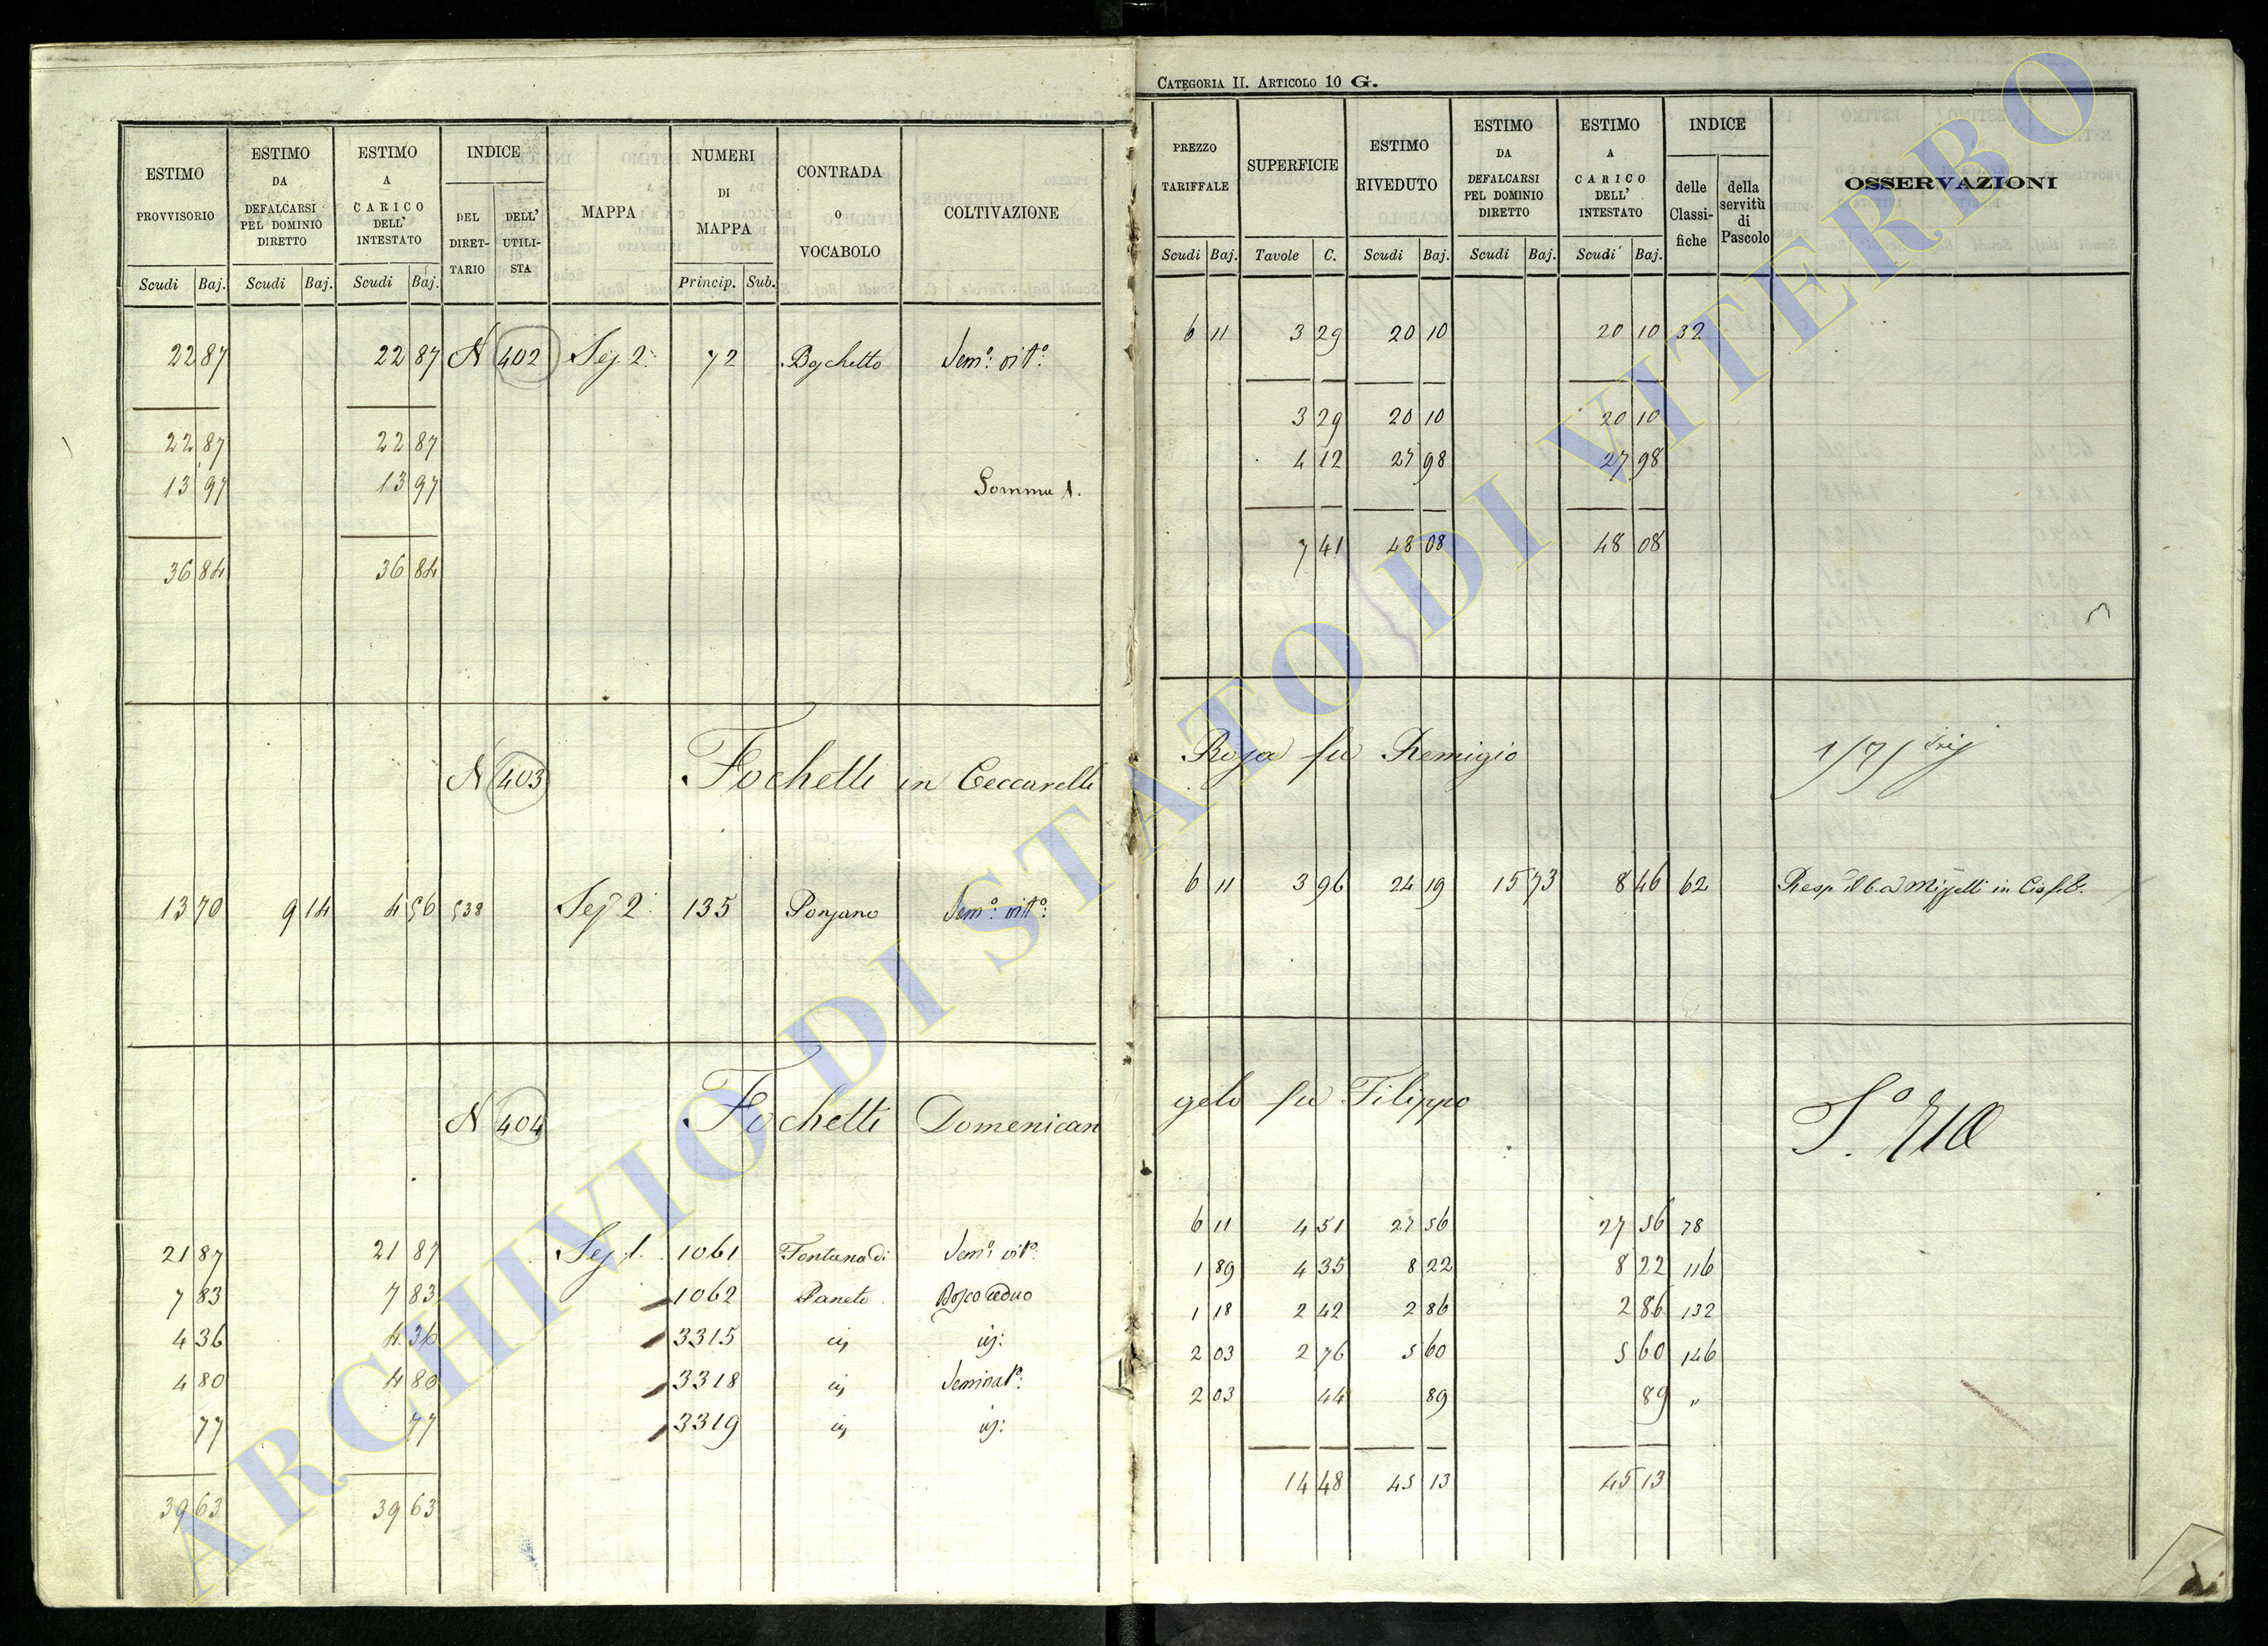 CATEGORIA II. ARTICOLO 10 G.
ESTIMO PROVVISORIO | ESTIMO DA DEFALCARSI PEL DOMINIO DIRETTO | ESTIMO A CARICO DELL' INTESTATO | INDICE DEL DIRETTARIO | DELL' UTILISTA | MAPPA | NUMERI DI MAPPA | CONTRADA O VOCABOLO | COLTIVAZIONE
Scudi Baj. | Scudi Baj. | Scudi Baj. | Princip. Sub.
22 87 | 22 87 | N 402 | Sez 2. | 72 | Boschetto | Sem.o vit.o
22 87 | 22 87
13 97 | 13 97 | Somma 1.
36 84 | 36 84
N 403 Fochetti in Ceccarelli
13 70 | 9 14 | 4 56 | 538 | Sez 2. | 135 | Ponzano | Sem.o vit.o
N 404 Fochetti Domenican
21 87 | 21 87 | Sez 1. | 1061 | Fontana di | Sem.o vit.o
7 83 | 7 83 | 1062 | Paneto | Bosco Ceduo
4 36 | 4 36 | 3315
4 80 | 4 80 | 3318 | Seminat.o
77 | 77 | 3319
39 63 | 39 63
PREZZO TARIFFALE | SUPERFICIE | ESTIMO RIVEDUTO | ESTIMO DA DEFALCARSI PEL DOMINIO DIRETTO | ESTIMO A CARICO DELL' INTESTATO | INDICE delle Classifiche | della servitù di Pascolo | OSSERVAZIONI
Scudi Baj. | Tavole C. | Scudi Baj. | Scudi Baj. | Scudi Baj.
6 11 | 3 29 | 20 10 | 20 10 | 32
3 29 | 20 10 | 20 10
4 12 | 27 98 | 27 98
7 41 | 48 08 | 48 08
Rosa fu Remigio
6 11 | 3 96 | 24 19 | 15 73 | 8 46 | 62
gelo fu Filippo
6 11 | 4 51 | 27 56 | 27 56 | 78
1 89 | 4 35 | 8 22 | 8 22 | 116
1 18 | 2 42 | 2 86 | 2 86 | 132
2 03 | 2 76 | 5 60 | 5 60 | 146
2 03 | 44 | 89 | 89 | "
14 48 | 45 13 | 45 13
ARCHIVIO DI STATO DI VITERBO